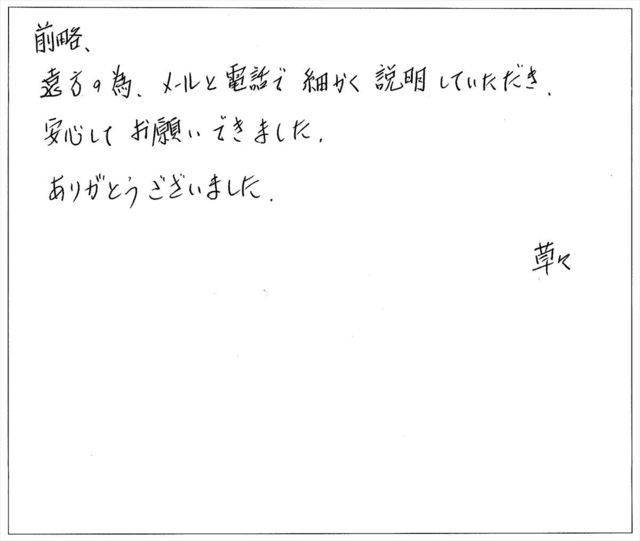 前略、
遠方の為、メールと電話で細かく説明していただき、
安心してお願いできました。
ありがとうございました。
草々